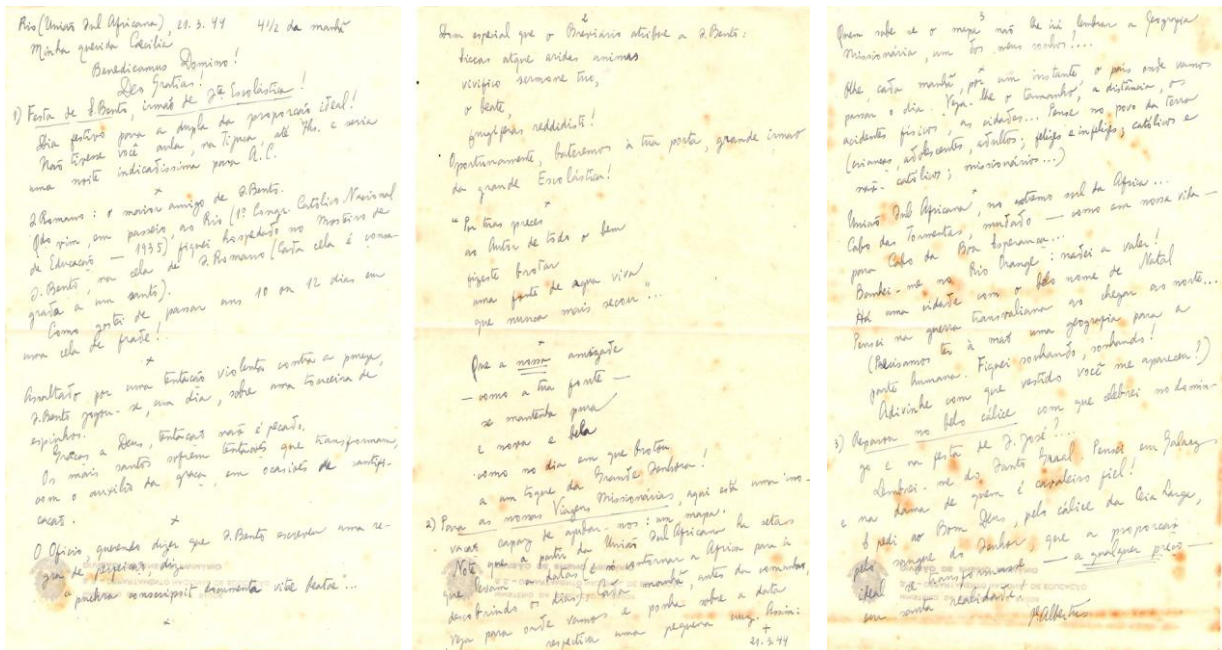 Rio (União Sul Africana), 21.3.44 4 1/2 da manhã
Minha querida Cecilia
Benedicamus Domino!
Deo Gratias!
1) Festa de S. Bento, irmão de Sta Escolástica!
Dia festivo para a dupla da proporção ideal!
Não tivesse você aula, na Tijuca, até 7hs. e seria
uma noite indicadíssima para A.C.
x
S. Romano: o maior amigo de S. Bento.
Qdo vim, em passeio, ao Rio (1º Congr. Católico Nacional
de Educação — 1935) fiquei hospedado no Mosteiro de
S. Bento, na cela de S. Romano (Cada cela é consa-
grada a um santo).
Como gostei de passar uns 10 ou 12 dias em
uma cela de frade!
x
Assaltado por uma tentação violenta contra a pureza,
S. Bento jogou-se, um dia, sobre uma touceira de
espinhos.
Graças a Deus, tentação não é pecado.
Os mais santos sofrem tentações que transformam,
com o auxílio da graça, em ocasiões de santifi-
cação.
x
O Ofício, querendo dizer que S. Bento escreveu uma re-
gra de perfeição, diz:
"pulchra conscripsit documenta vite beatae"...
x
2
Dom especial que o Breviário atribue a S. Bento:
siccas atque arides animas
vivifico sermone tuo,
o beate,
frugiferas reddidisti!
Oportunamente, bateremos à tua porta, grande irmão
da grande Escolástica!
x
"Por tuas preces
ao Autor de todo o bem
fizeste brotar
uma fonte de agua viva
que nunca mais secou"...
x
Que a nossa amizade
— como a tua fonte —
se mantenha pura
e nova e bela
como no dia em que brotou
a um toque da Grande Senhora!
2) Para as nossas Viagens Missionárias, aqui está uma ino-
vação capaz de ajudar-nos: um mapa.
Note que a partir da União Sul Africana ha setas
que levam a datas (é só contornar a Africa para ir
descobrindo os dias). Cada manhã, antes da comunhão,
veja para onde vamos e ponha sobre a data
respectiva uma pequena cruz. Assim:
+
21.3.44
3
Quem sabe se o mapa não lhe irá lembrar a Geografia
Missionária, um dos meus sonhos!...
Olhe, cada manhã, por um instante, o país onde vamos
passar o dia. Veja-lhe o tamanho, a distância, os
acidentes físicos, as cidades... Pense no povo da terra
(crianças, adolescentes, adultos; felizes e infelizes; católicos e
não-católicos; missionários...)
x
União Sul Africana, no extremo sul da Africa...
Cabo das Tormentas, mudado — como em nossa vida —
para Cabo da Boa Esperança...
Banhei-me no Rio Orange: nadei a valer!
Há uma cidade com o belo nome de Natal
Pensei na guerra transvaliana ao chegar ao norte...
(Precisamos ter à mão uma geografia para a
parte humana. Fiquei sonhando, sonhando!
Adivinhe com que vestido você me apareceu?)
3) Reparou no belo cálice com que celebrei no domin-
go e na festa de S. José?...
Lembrei-me do Santo Graal. Pensei em Galaaz
e na dama de quem é cavaleiro fiel!
E pedi ao Bom Deus, pelo cálice da Ceia Larga,
pelo sangue do Senhor, que a proporção
ideal se transformasse — a qualquer preço —
em santa realidade.